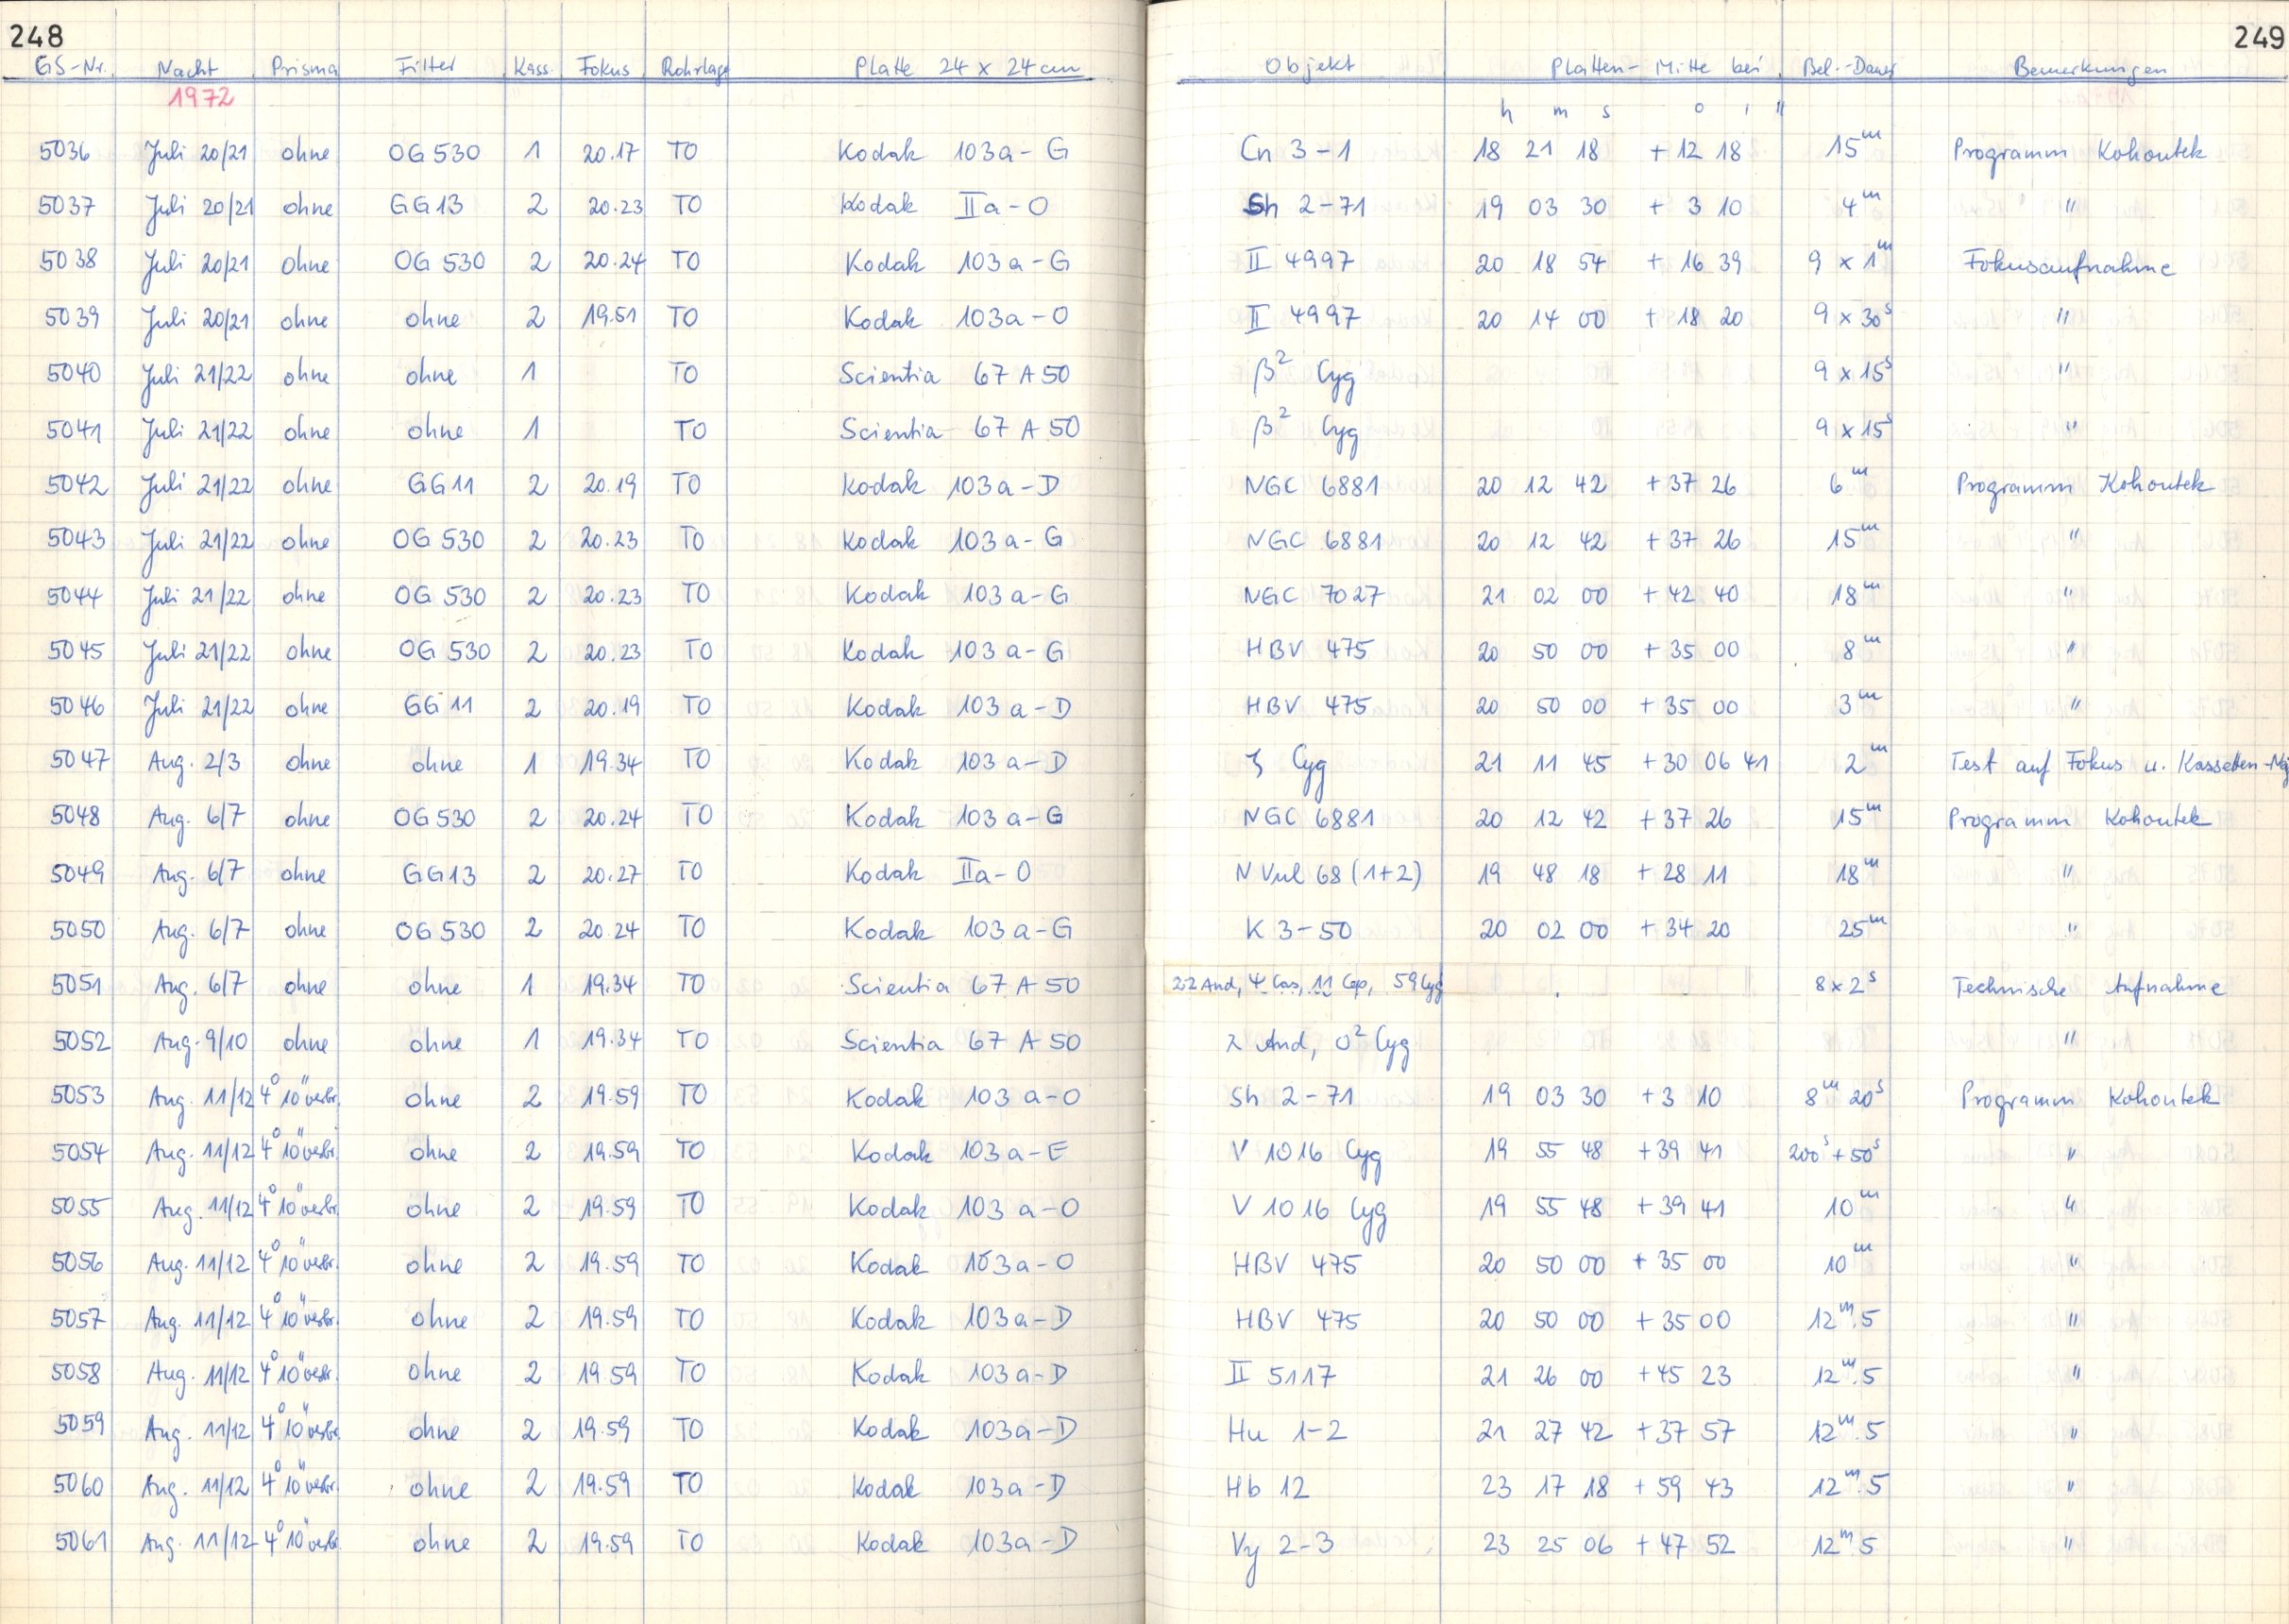 248 249
GS-Nr. Nacht Prisma Filter Kass. Fokus Rohrlage Platte 24 x 24 cm Objekt Platten-Mitte bei Bel.-Dauer Bemerkungen
1972
h m s o ' "
5036 Juli 20/21 ohne OG 530 1 20.17 TO Kodak 103a-G Cn 3-1 18 21 18 +12 18 15m Programm Kohoutek
5037 Juli 20/21 ohne GG13 2 20.23 TO Kodak IIa-O Sh 2-71 19 03 30 + 3 10 4m "
5038 Juli 20/21 ohne OG 530 2 20.24 TO Kodak 103a-G II 4997 20 18 54 +16 39 9 x 1m Fokusaufnahme
5039 Juli 20/21 ohne ohne 2 19.51 TO Kodak 103a-O II 4997 20 14 00 +18 20 9 x 30s "
5040 Juli 21/22 ohne ohne 1 TO Scientia 67 A 50 β² Cyg 9 x 15s "
5041 Juli 21/22 ohne ohne 1 TO Scientia 67 A 50 β² Cyg 9 x 15s "
5042 Juli 21/22 ohne GG11 2 20.19 TO Kodak 103a-D NGC 6881 20 12 42 +37 26 6m Programm Kohoutek
5043 Juli 21/22 ohne OG 530 2 20.23 TO Kodak 103a-G NGC 6881 20 12 42 +37 26 15m "
5044 Juli 21/22 ohne OG 530 2 20.23 TO Kodak 103a-G NGC 7027 21 02 00 +42 40 18m "
5045 Juli 21/22 ohne OG 530 2 20.23 TO Kodak 103a-G HBV 475 20 50 00 +35 00 8m "
5046 Juli 21/22 ohne GG 11 2 20.19 TO Kodak 103a-D HBV 475 20 50 00 +35 00 3m "
5047 Aug. 2/3 ohne ohne 1 19.34 TO Kodak 103a-D ζ Cyg 21 11 45 +30 06 41 2m Test auf Fokus u. Kassetten-
5048 Aug. 6/7 ohne OG 530 2 20.24 TO Kodak 103a-G NGC 6881 20 12 42 +37 26 15m Programm Kohoutek
5049 Aug. 6/7 ohne GG13 2 20.27 TO Kodak IIa-O N Vul 68 (1+2) 19 48 18 +28 11 18m "
5050 Aug. 6/7 ohne OG 530 2 20.24 TO Kodak 103a-G K 3-50 20 02 00 +34 20 25m "
5051 Aug. 6/7 ohne ohne 1 19.34 TO Scientia 67 A 50 22 And, 4 Cas, 11 Cep, 59 Cyg 8x2s Technische Aufnahme
5052 Aug. 9/10 ohne ohne 1 19.34 TO Scientia 67 A 50 λ And, o² Cyg "
5053 Aug. 11/12 4° 10" verbr. ohne 2 19.59 TO Kodak 103a-O Sh 2-71 19 03 30 +3 10 8m 20s Programm Kohoutek
5054 Aug. 11/12 4° 10" verbr. ohne 2 19.59 TO Kodak 103a-E V 1016 Cyg 19 55 48 +39 41 200s+50s "
5055 Aug. 11/12 4° 10" verbr. ohne 2 19.59 TO Kodak 103a-O V 1016 Cyg 19 55 48 +39 41 10m "
5056 Aug. 11/12 4° 10" verbr. ohne 2 19.59 TO Kodak 103a-O HBV 475 20 50 00 +35 00 10m "
5057 Aug. 11/12 4° 10" verbr. ohne 2 19.59 TO Kodak 103a-D HBV 475 20 50 00 +35 00 12m.5 "
5058 Aug. 11/12 4° 10" verbr. ohne 2 19.59 TO Kodak 103a-D II 5117 21 26 00 +45 23 12m.5 "
5059 Aug. 11/12 4° 10" verbr. ohne 2 19.59 TO Kodak 103a-D Hu 1-2 21 27 42 +37 57 12m.5 "
5060 Aug. 11/12 4° 10" verbr. ohne 2 19.59 TO Kodak 103a-D Hb 12 23 17 18 +59 43 12m.5 "
5061 Aug. 11/12 4° 10" verbr. ohne 2 19.59 TO Kodak 103a-D Vy 2-3 23 25 06 +47 52 12m.5 "